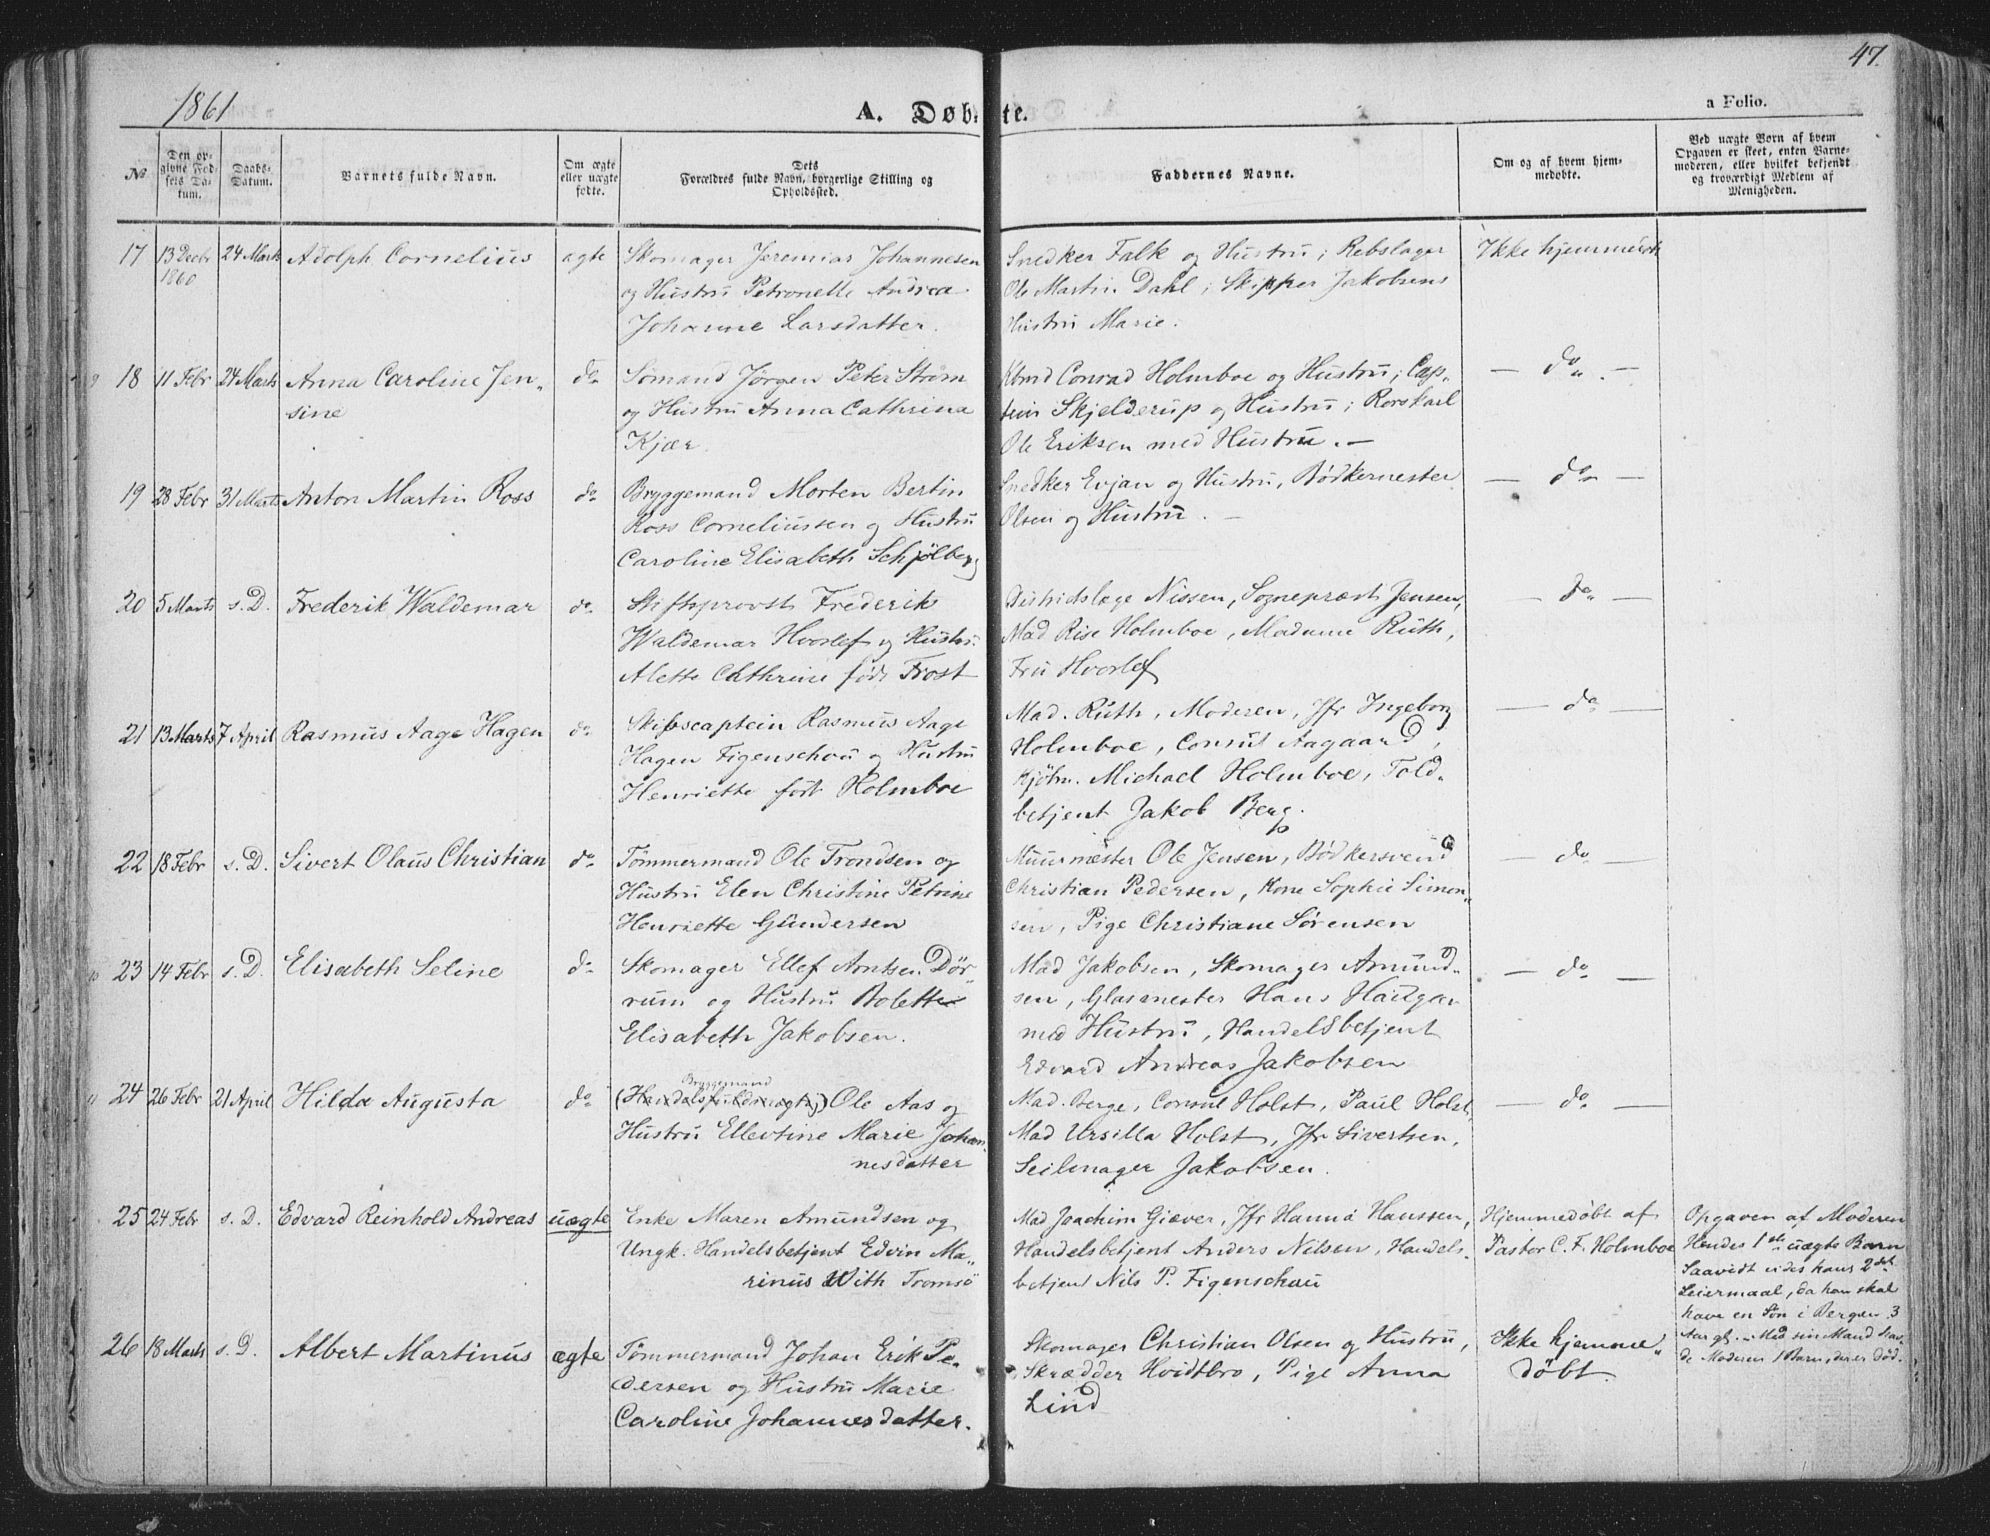 1861
A. Døbte.
47.
a Folio.
No
Den opgivne Fødsels Datum.
Daabs-Datum.
Barnets fulde Navn.
Om ægte eller uægte fødte.
Dets Forældres fulde Navn, borgerlige Stilling og Opholdssted.
Faddernes Navne.
Om og af hvem hjemmedøbte.
Ved uægte Børn af hvem Opgaven er skeet, enten Barnemoderen, eller hvilket bekjendt og troværdigt Medlem af Menigheden.
17 13 Decbr 1860 24 Marts Adolph Cornelius ægte
Skomager Jeremias Johannesen
og Hustru Petronelle Andrea
Johanne Larsdatter.
Snedker Falk og Hustru; Rebslager
Ole Martin Dahl; Skipper Jakobsens
Hustru Marie.
Ikke hjemmedøbt
18 11 Febr 24 Marts Anna Caroline Jen-
sine
do
Sømand Jørgen Peter Strøm
og Hustru Anna Cathrina
Kjær.
Kbmd Conrad Holmboe og Hustru; Cap-
tein Skjelderup og Hustru; Rorskarl
Ole Eriksen med Hustru. –
– do –
19 28 Febr 31 Marts Anton Martin Ross do
Bryggemand Morten Bertin
Ross Corneliussen og Hustru
Caroline Elisabeth Schjølberg
Snedker Evjan og Hustru, Bødkermester
Olsen og Hustru. –
– do –
20 5 Marts s. D. Frederik Waldemar do
Stiftsprovst Frederik
Waldemar Hvoslef og Hustru
Alette Cathrine født Frost
Distriktslæge Nissen, Sognepræst Jensen,
Mad Rise Holmboe, Madame Ruth,
Fru Hvoslef
– do –
21 13 Marts 7 April Rasmus Aage Hagen do
Skibscaptein Rasmus Aage
Hagen Figenschou og Hustru
Henriette født Holmboe
Mad. Ruth, Moderen, Jfr Ingeborg
Holmboe, Consul Aagaard,
Kjøbm. Michael Holmboe, Told-
betjent Jakob Berg.
– do –
22 18 Febr s. D. Sivert Olaus Christian do
Tømmermand Ole Trondsen og
Hustru Elen Christine Petrine
Henriette Gundersen
Muurmester Ole Jensen, Bødkersvend
Christian Pedersen, Kone Sophie Simon-
sen, Pige Christiane Sørensen
– do –
23 14 Febr s. D. Elisabeth Seline do
Skomager Ellef Arntsen Dør
rum og Hustru Bolette
Elisabeth Jakobsen.
Mad Jakobsen, Skomager Amund-
sen, Glasmester Hans
med Hustru, Handelsbetjent
Edvard Andreas Jakobsen
– do –
24 26 Febr 21 April Hilda Augusta do
Bryggemand
(Handelsfuldmægtig) Ole Aas og
Hustru Ellevtine Marie Johan-
nesdatter
Mad. Berge, Consul Holst, Paul Holst,
Mad Ursilla Holst, Jfr Sivertsen,
Seilmager Jakobsen.
– do –
25 24 Febr s. D. Edvard Reinhold Andreas uægte
Enke Maren Amundsen og
Ungk. Handelsbetjent Edvin Ma-
rinus With Tromsø
Mad Joachim Giæver, Jfr Hanna Hanssen,
Handelsbetjent Anders Nilsen, Handels-
betjent Nils P. Figenschau
Hjemmedøbt af
Pastor C. F. Holmboe
Opgaven af Moderen
Hendes 1ste uægte Barn
Saavidt vides hans 2det
Leiermaal, da han skal
have en Søn i Bergen 3
Aar gl. – Med sin Mand hav-
de Moderen 1 Barn, der er død.
26 18 Marts s. D. Albert Martinus ægte
Tømmermand Johan Erik Pe-
dersen og Hustru Marie
Caroline Johannesdatter.
Skomager Christian Olsen og Hustru,
Skrædder Hvidtbro, Pige Anna
Lind
Ikke hjemme-
døbt.